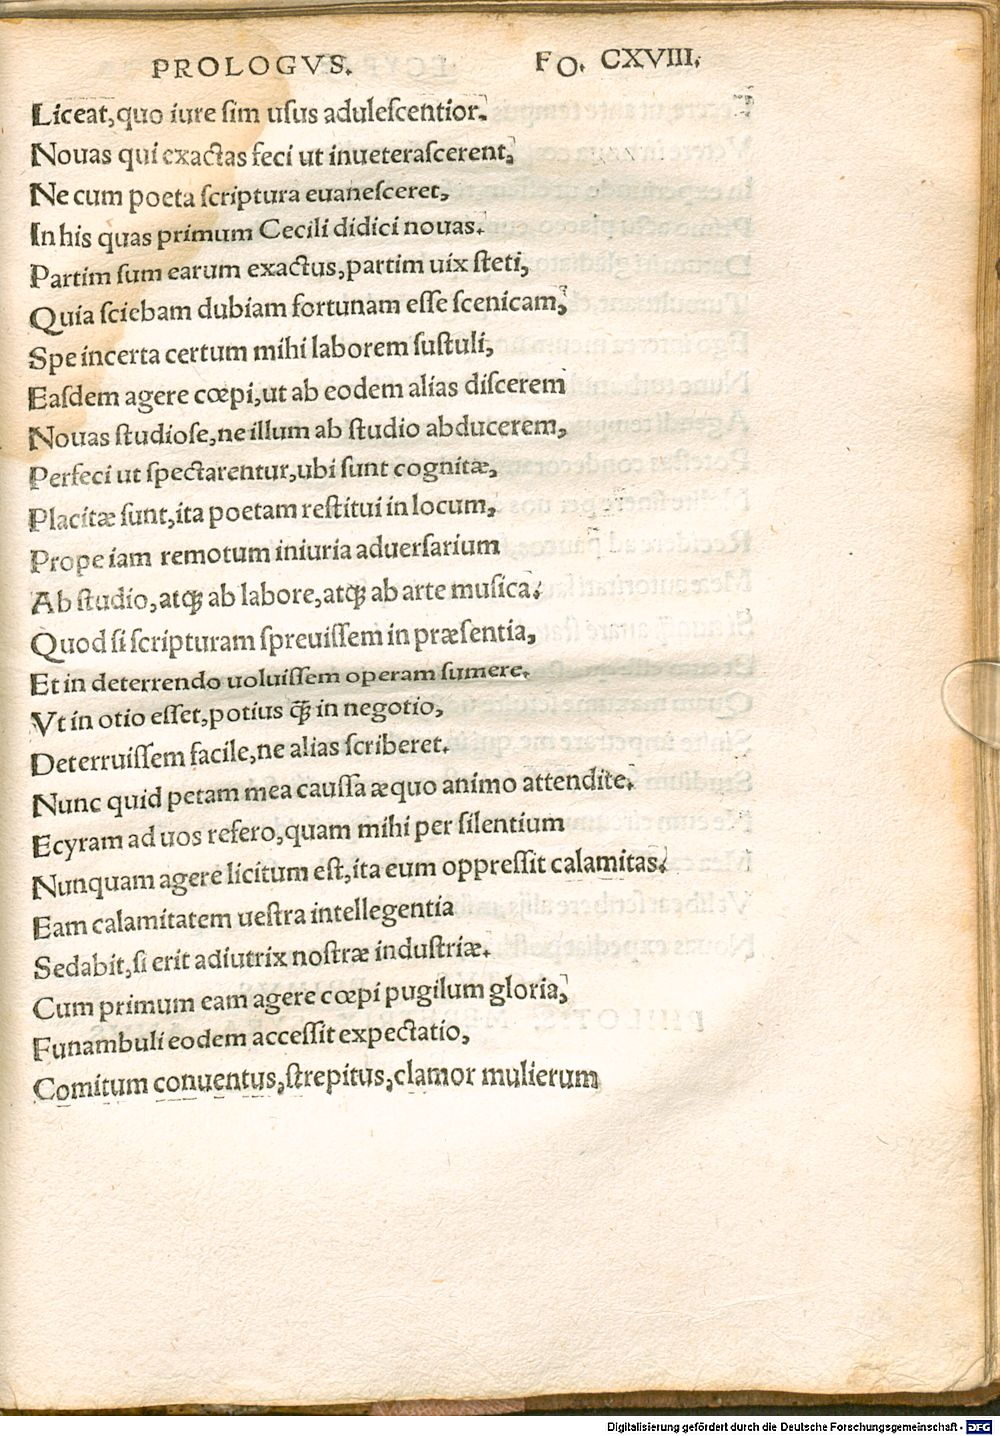 PROLOGVS. FO. CXVIII.
Liceat,quo iure sim usus adulescentior.
Nouas qui exactas feci ut inueterascerent,
Ne cum poeta scriptura euanesceret,
In his quas primum Cecili didici nouas.
Partim sum earum exactus,partim uix steti,
Quia sciebam dubiam fortunam esse scenicam,
Spe incerta certum mihi laborem sustuli,
Easdem agere cœpi,ut ab eodem alias discerem
Nouas studiose,ne illum ab studio abducerem,
Perfeci ut spectarentur,ubi sunt cognitæ,
Placitæ sunt,ita poetam restitui in locum,
Prope iam remotum iniuria aduersarium
Ab studio,atq; ab labore,atq; ab arte musica.
Quod si scripturam spreuissem in præsentia,
Et in deterrendo uoluissem operam sumere.
Vt in otio esset,potius q̃ in negotio,
Deterruissem facile,ne alias scriberet.
Nunc quid petam mea caussa æquo animo attendite.
Ecyram ad uos refero,quam mihi per silentium
Nunquam agere licitum est,ita eum oppressit calamitas.
Eam calamitatem uestra intellegentia
Sedabit,si erit adiutrix nostræ industriæ.
Cum primum eam agere cœpi pugilum gloria,
Funambuli eodem accessit expectatio,
Comitum conuentus,strepitus,clamor mulierum
Digitalisierung gefördert durch die Deutsche Forschungsgemeinschaft - DFG